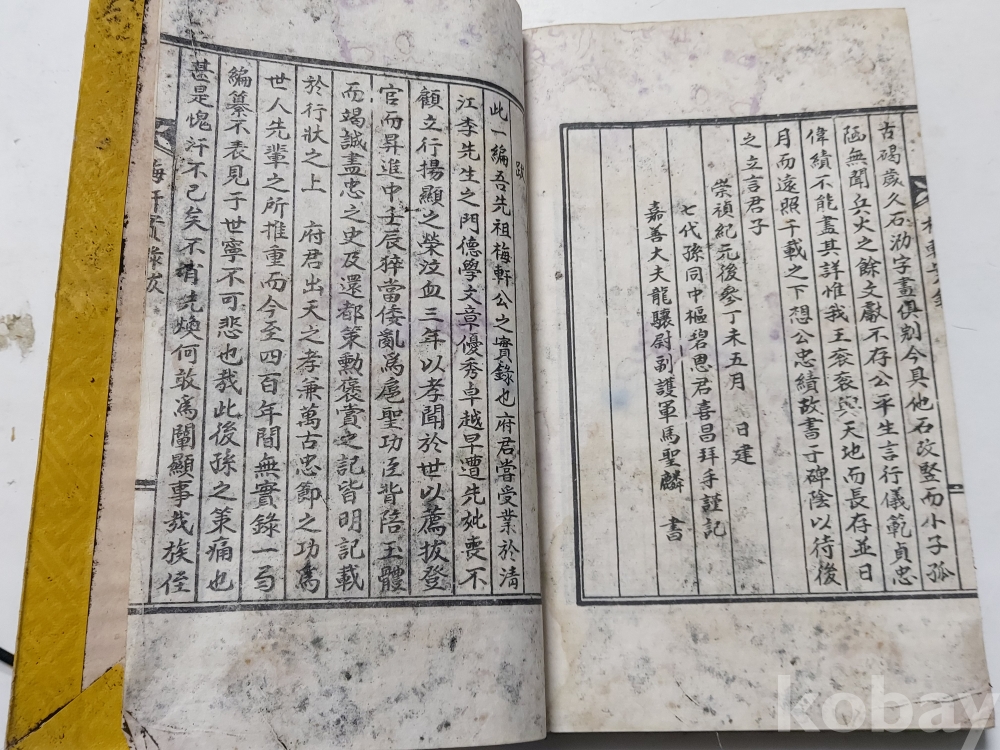 古碣歲久石泐字畫俱剜今具他石改竪而小子孤
陋無聞兵火之餘文獻不存公平生言行儀範貞忠
偉績不能盡其詳惟我王袞袞與天地而長存並日
月而遠照千載之下想公忠績故書于碑陰以待後
之立言君子
崇禎紀元後參丁未五月 日建
七代孫同中樞碧恩君喜昌拜手謹記
嘉善大夫龍驤尉副護軍馬聖麟 書
跋
此一編吾先祖梅軒公之實錄也府君嘗受業於清
江李先生之門德學文章優秀卓越早遭先妣喪不
顧立行揚顯之榮泣血三年以孝聞於世以薦拔登
官而昇進中壬辰猝當倭亂爲扈聖功臣背陪玉體
而竭誠盡忠之史及還都策勳褒賞之記皆明記載
於行狀之上 府君出天之孝兼萬古忠節之功爲
世人先輩之所推重而今至四百年間無實錄一局
編纂不表見于世寧不可悲也哉此後孫之策痛也
甚是愧汗不已矣不肖先煥何敢爲闡顯事哉族侄
梅軒實錄跋
kobay